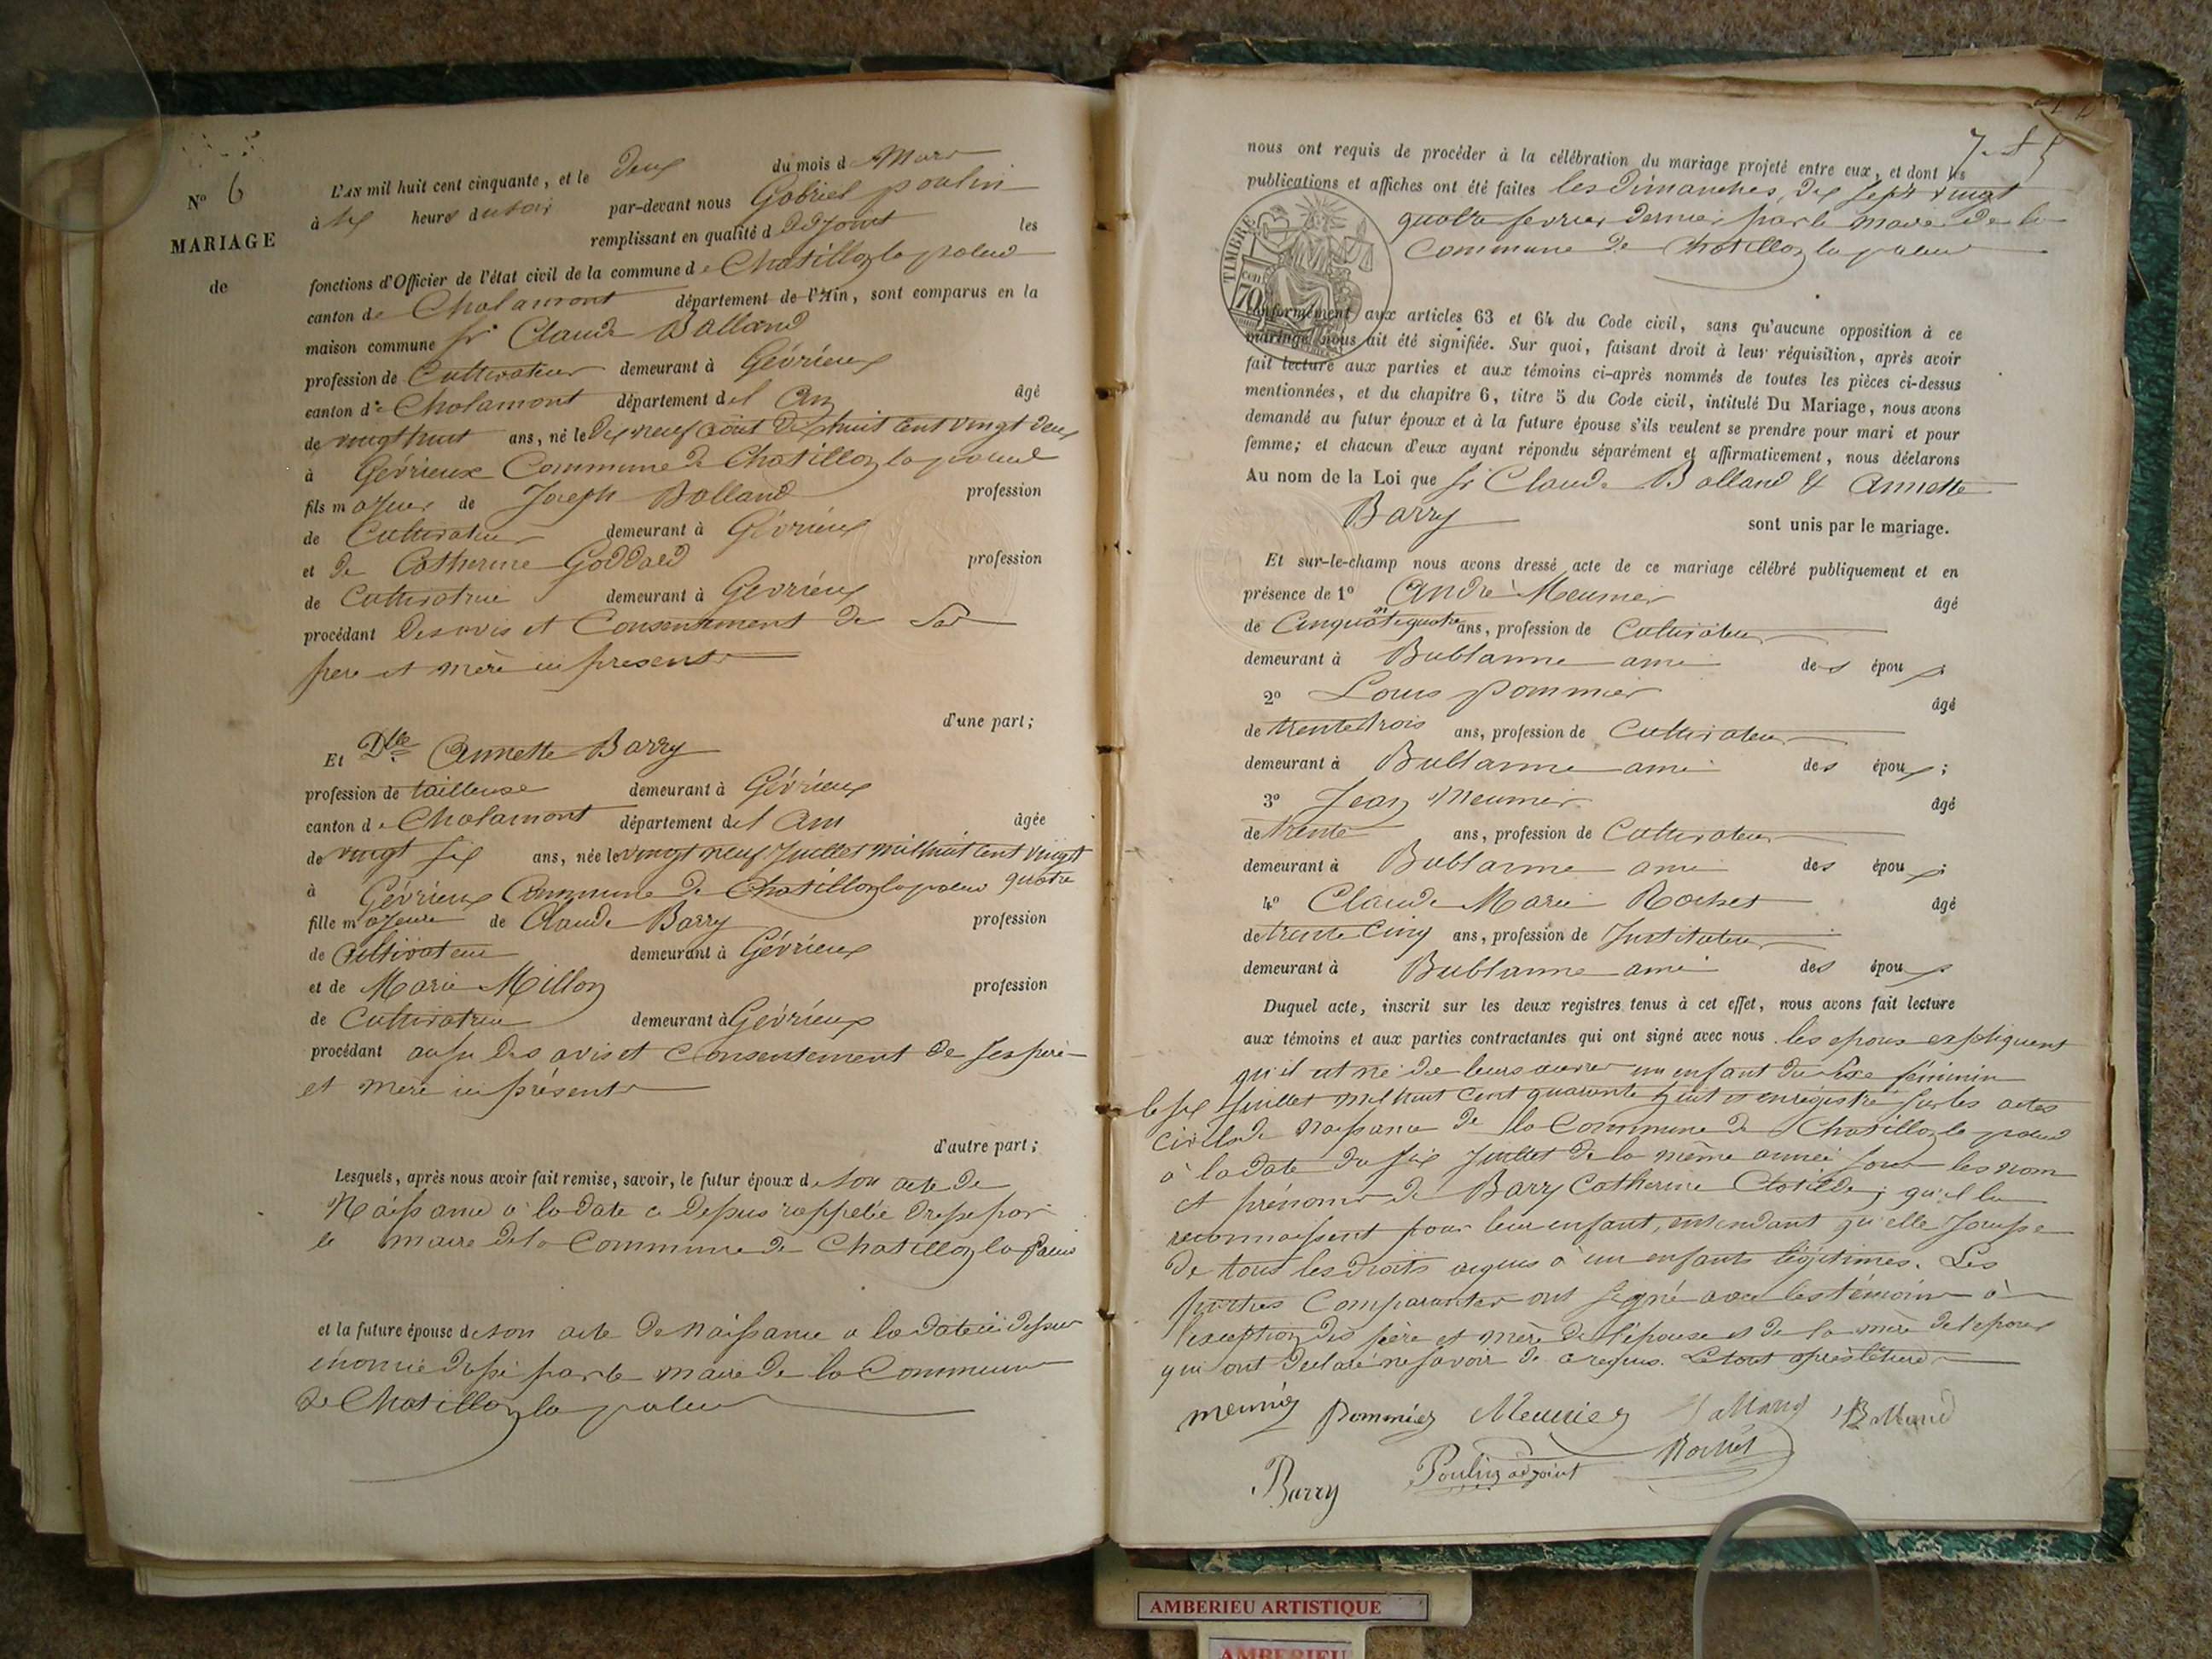 N° 6
MARIAGE
de
L'AN mil huit cent cinquante, et le deux du mois d Mars
à six heures du soir par-devant nous Gabriel poulin
remplissant en qualité d adjoint les
fonctions d'Officier de l'état civil de la commune de Chatillon la palud
canton de Chalamont département de l'Ain, sont comparus en la
maison commune Sr Claude Balland
profession de Cultivateur demeurant à Gévrieux
canton de Chalamont département del Ain âgé
de vingt huit ans, né le dix neuf août dix huit cent vingt deux
à Gévrieux Commune de Chatillon la palud
fils majeur de Joseph Balland profession
de Cultivateur demeurant à Gévrieux
et de Catherine Goddard profession
de Cultivatrice demeurant à Gevrieux
procédant des avis et Consentement de Ses
pere et mère ici présents
d'une part;
Et Dlle Annette Barry
profession de tailleuse demeurant à Gévrieux
canton de Chalamont département del Ain âgée
de vingt six ans, née le vingt neuf Juillet mil huit cent vingt
quatre
à Gévrieux Commune de Chatillon la palud
fille majeure de Claude Barry profession
de Cultivateur demeurant à Gévrieux
et de Marie Millon profession
de Cultivatrice demeurant à Gévrieux
procédant aussi des avis et Consentement de ses père
et mère ici présents
d'autre part;
Lesquels, après nous avoir fait remise, savoir, le futur époux de son acte de
Naissance à la date ci dessus rappelée dressé par
le maire de la Commune de Chatillon la Palud
et la future épouse de son acte de naissance a la date ci dessus
énoncée dressé par le maire de la Commune
de Chatillon la palud
nous ont requis de procéder à la célébration du mariage projeté entre eux, et dont les
publications et affiches ont été faites les Dimanches, dix sept & vingt
quatre fevrier dernier par le maire de la
Commune de Chatillon la palud
TIMBRE
70
conformément aux articles 63 et 64 du Code civil, sans qu'aucune opposition à ce
mariage nous ait été signifiée. Sur quoi, faisant droit à leur réquisition, après avoir
fait lecture aux parties et aux témoins ci-après nommés de toutes les pièces ci-dessus
mentionnées, et du chapitre 6, titre 5 du Code civil, intitulé Du Mariage, nous avons
demandé au futur époux et à la future épouse s'ils veulent se prendre pour mari et pour
femme; et chacun d'eux ayant répondu séparément et affirmativement, nous déclarons
Au nom de la Loi que Sr Claude Balland & Annette
Barry sont unis par le mariage.
Et sur-le-champ nous avons dressé acte de ce mariage célébré publiquement et en
présence de 1° André Meunier âgé
de Cinquante quatre ans, profession de Cultivateur
demeurant à Bublanne ami des époux
2° Louis pommier âgé
de trente trois ans, profession de Cultivateur
demeurant à Bublanne ami des époux;
3° Jean Meunier âgé
de trente ans, profession de Cultivateur
demeurant à Bublanne ami des époux;
4° Claude Marie Rochet âgé
de trente Cinq ans, profession de Instituteur
demeurant à Bublanne ami des époux
Duquel acte, inscrit sur les deux registres tenus à cet effet, nous avons fait lecture
aux témoins et aux parties contractantes qui ont signé avec nous. les epoux expliquent
qu'il est né de leurs œuvres un enfant du sexe féminin
le six Juillet mil huit Cent quarante huit et enregistré sur les actes
civils de naissance de la Commune de Chatillon la palud
à la date du six Juillet de la même année sous les nom
et prénoms de Barry Catherine Clotilde; qu'il la
reconnaissent pour leur enfant, entendant qu'elle Jouisse
de tous les droits acquis à un enfants légitimes. Les
parties Comparantes ont signé avec les témoins à
l'exception des père et mère de l'épouse et de la mère de l'epoux
qui ont déclaré ne savoir de ce requis. Le tout après lecture
meunier Pommier Meunier Balland Balland
Barry Poulin adjoint Rochet
AMBERIEU ARTISTIQUE
AMBERIEU